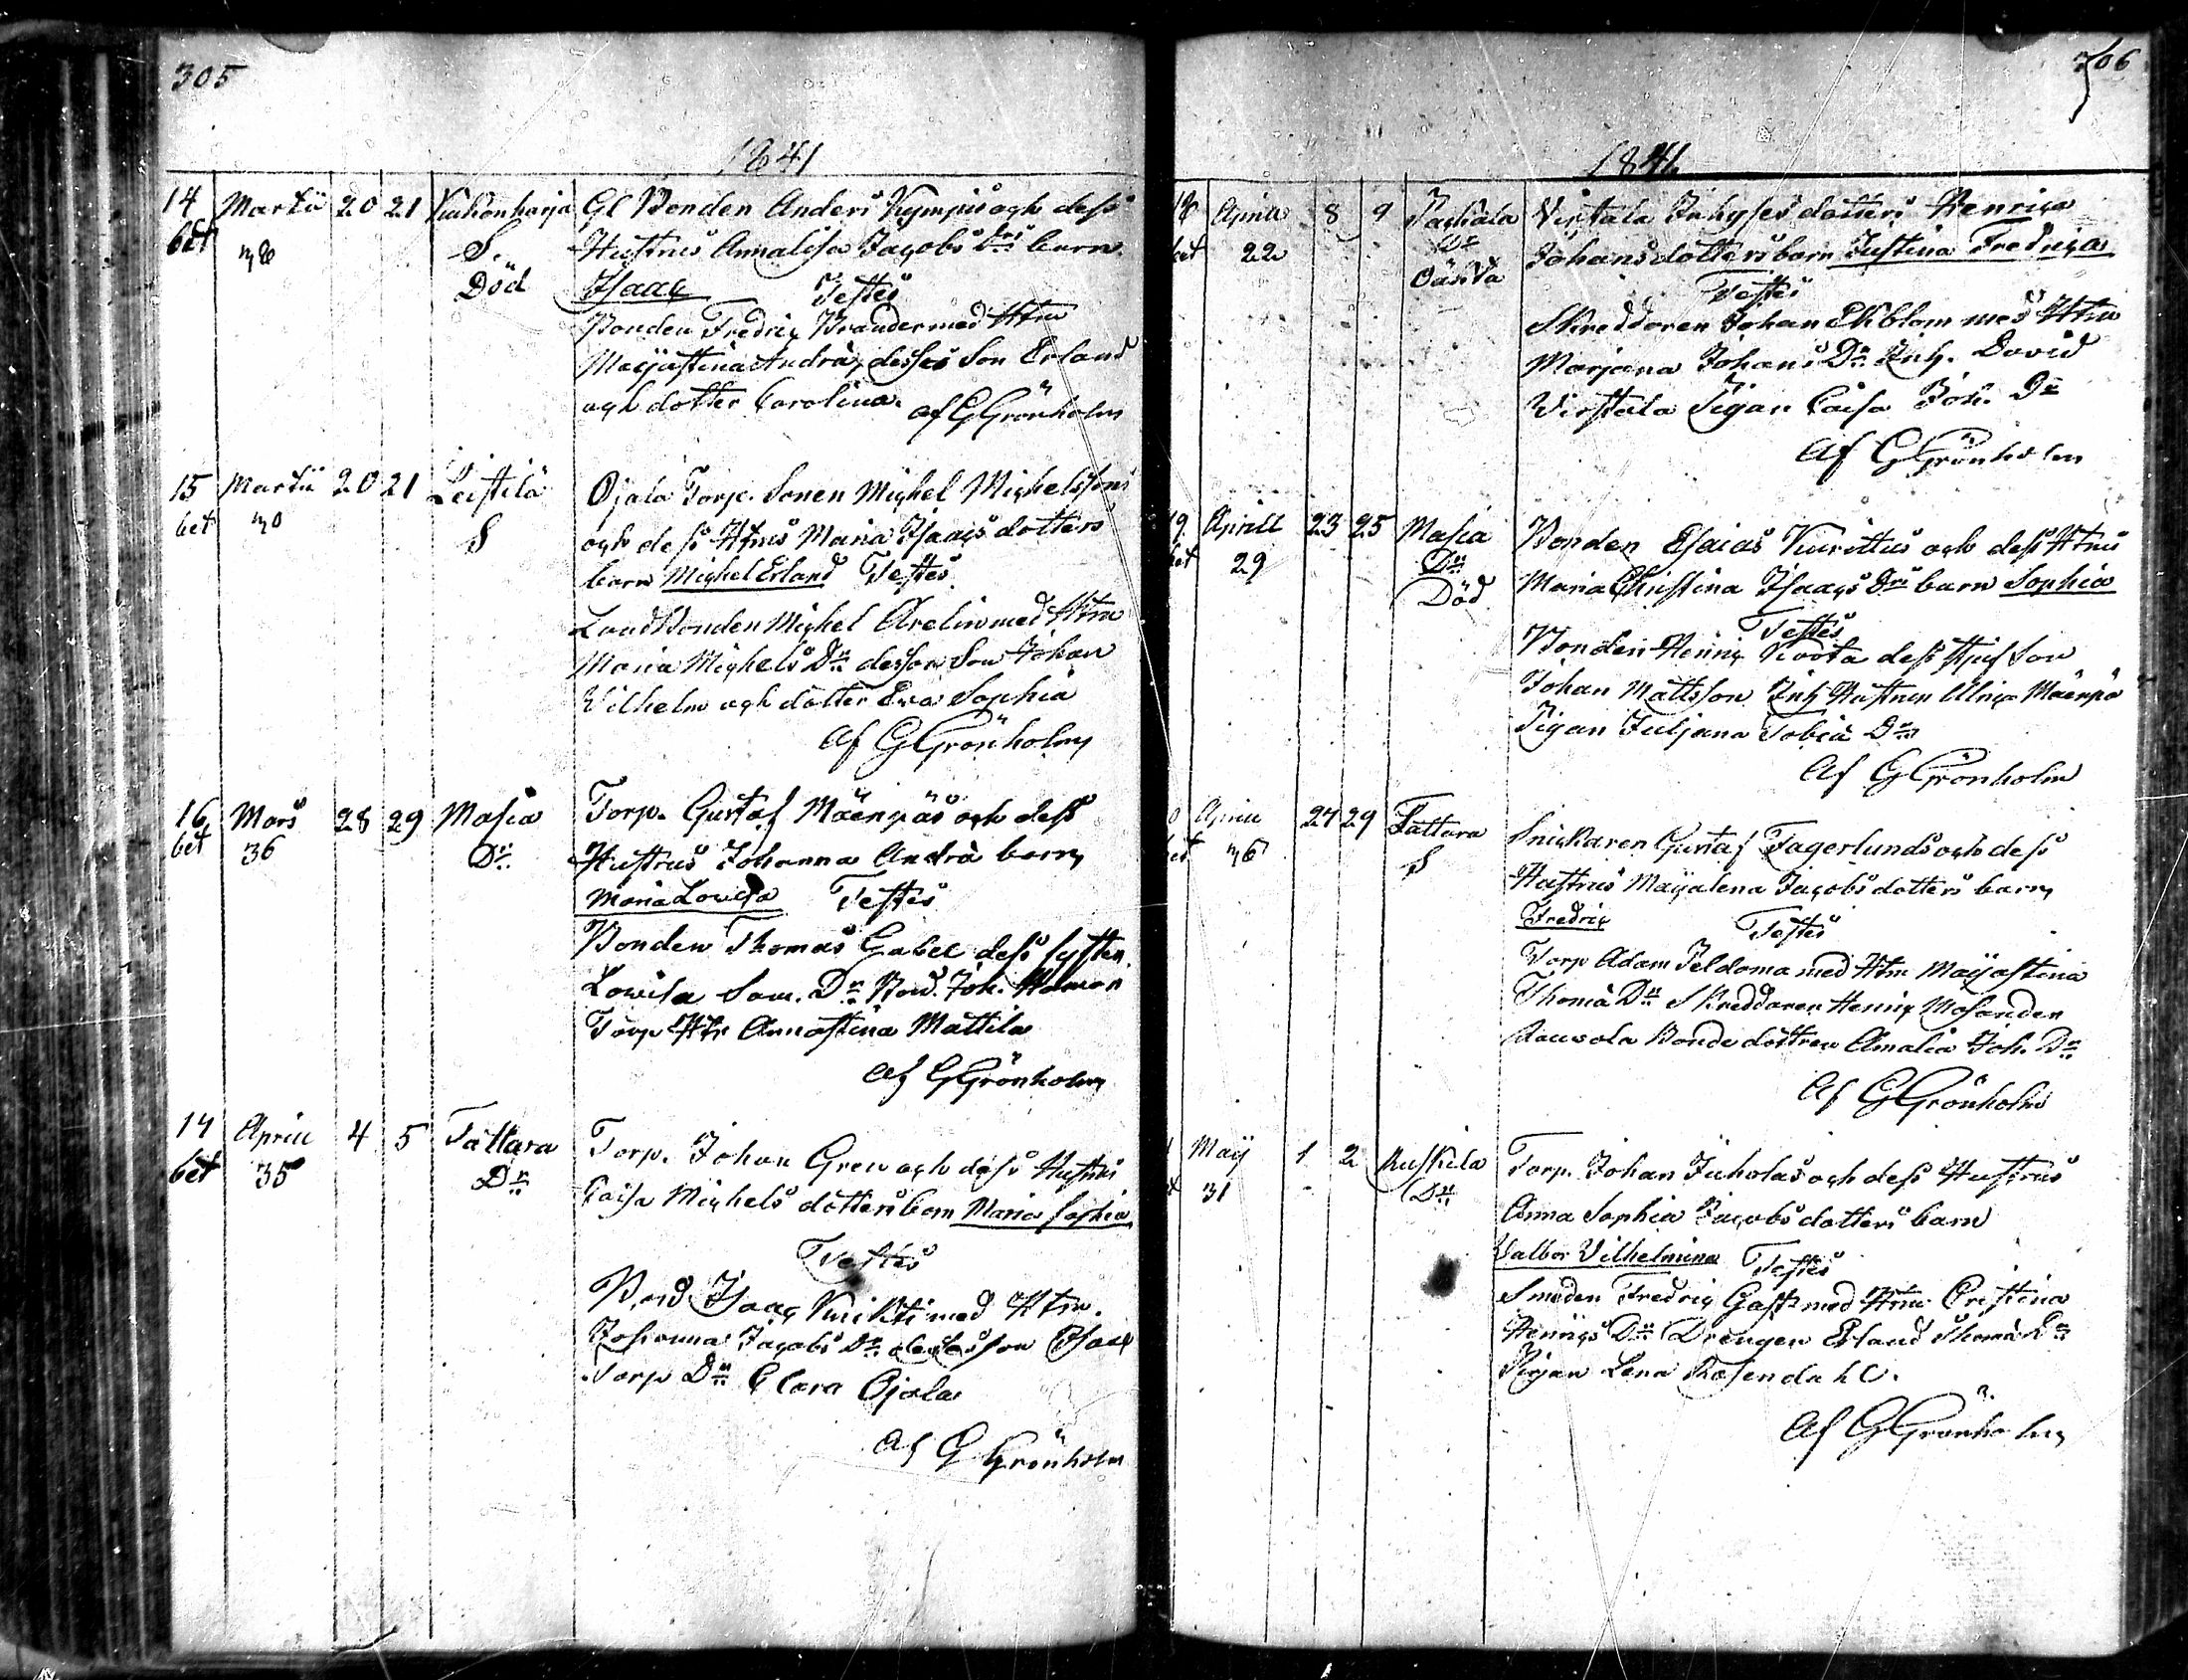 305
1841
14 Martii 20 21 Kiukonharja Gl Bonden Anders Nympis och dess
bet S. Hustrus Annalisa Jacobs Drs barn
Död Isaac Testes
Bonden Fredric Brander med Hrn
Majastina Andrä, desses Son Erland
och dotter Carolina.
af G Grönholm
15 Martii 20 21 Leistilä Ojala Torp. Sonen Michel Michelssons
bet 30 S och dess Hrus Maria Isaacs dotters
barn Michel Erland Testes
Landbonden Michel Arelin med Hrn
Maria Michels Dr dessas Son Johan
Vilhelm och dotter Eva Sophia
af G Grönholm
16 Mars 28 29 Masia Torp. Gustaf Mäenpäs och dess
bet 36 Dr Hustrus Johanna Andrä barn
Maria Lovisa Testes
Bonden Thomas Gabel dess syster
Lovisa Sam. Dr Bond. Joh.
Torp Hr Annastina Mattila
af G Grönholm
17 Aprill 4 5 Tattara Torp. Johan Gren och dess Hustrus
bet 35 Dr Caisa Michels dotters barn Maria Sophia
Testes
Bond Isaac med Hrn.
Johanna Jacobs Dr desses son Isaac
Torp Dr Clara Ojala
af G Grönholm
306
1841
18 Aprill 8 9 Paskala Virtala Inhyses dotters Henrica
bet 22 Dr Johansdotters barn Justina Fredrica
Oäkta Testes
Skreddaren Johan Ekblom med Hrn
Marjana Johans Dr Inh. David
Virtala Pigan Caisa Joh. Dr
af G Grönholm
19 Aprill 23 25 Masia Bonden Esaias och dess Hrus
bet 29 Dr Maria Christina Isaacs Drs barn Sophia
Död Testes
Bonden Henric Noota dess styfson
Johan Mattsson Inh Hustrun Ulrica Mäenpä
Pigan Juljana Tobiä Dr
af G Grönholm
Aprill 27 29 Tattara Snickaren Gustaf Fagerlunds och dess
bet 36 S Hustrus Majalena Jacobs dotters barn
Fredric Testes
Torp Adam Peldoma med Hrn Majastina
Thomä Dr Skreddaren Henric Mosander
Rauvola Bonde dottren Amalia Joh. Dr
af G Grönholm
Maij 1 2 Ruskila Torp. Johan Juholas och dess Hustrus
31 Dr Anna Sophia Jacobs dotters barn
Valbor Vilhelmina Testes
Smeden Fredric Gast med Hrn Cristina
Henrics Dr Drengen Erland Thomä
Pigan Lena Rosendahl.
af G Grönholm